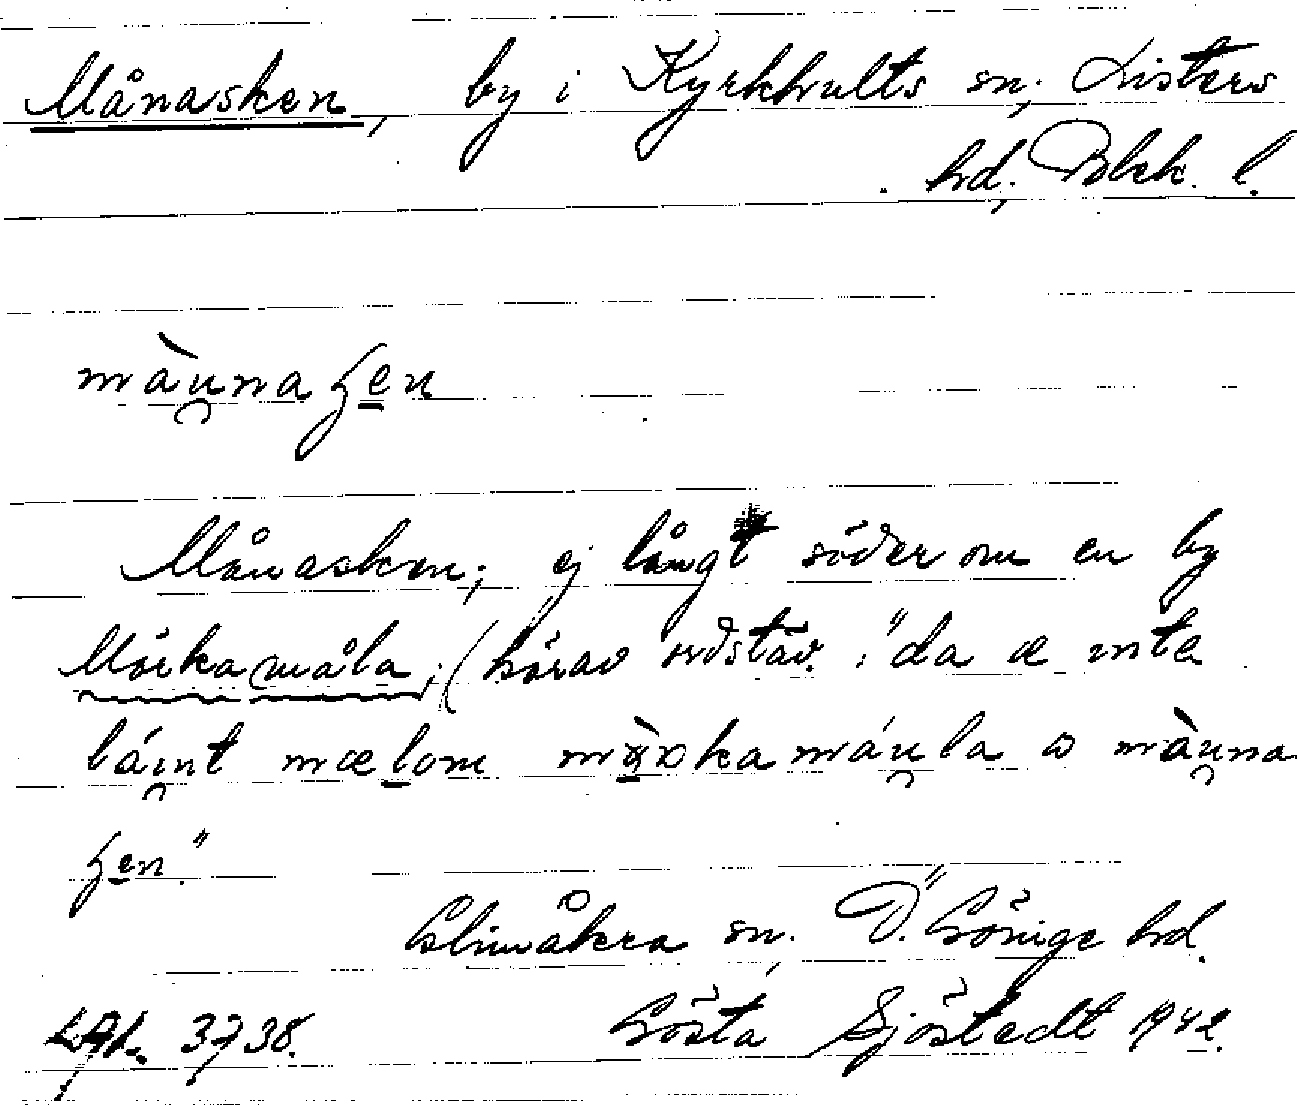 Månasken, by i Kyrkhults sn; Listers
hd; Blek. l.
màu̯naʃen
Månasken; ej långt söder om en by
Mörkamåla; (härav ordstäv: "da æ inte
láint mælom mörka máu̯la o màu̯na
ʃen."
Glimåkra sn. Ö. Göinge hd.
Gösta Sjöstedt 1942.
3738.